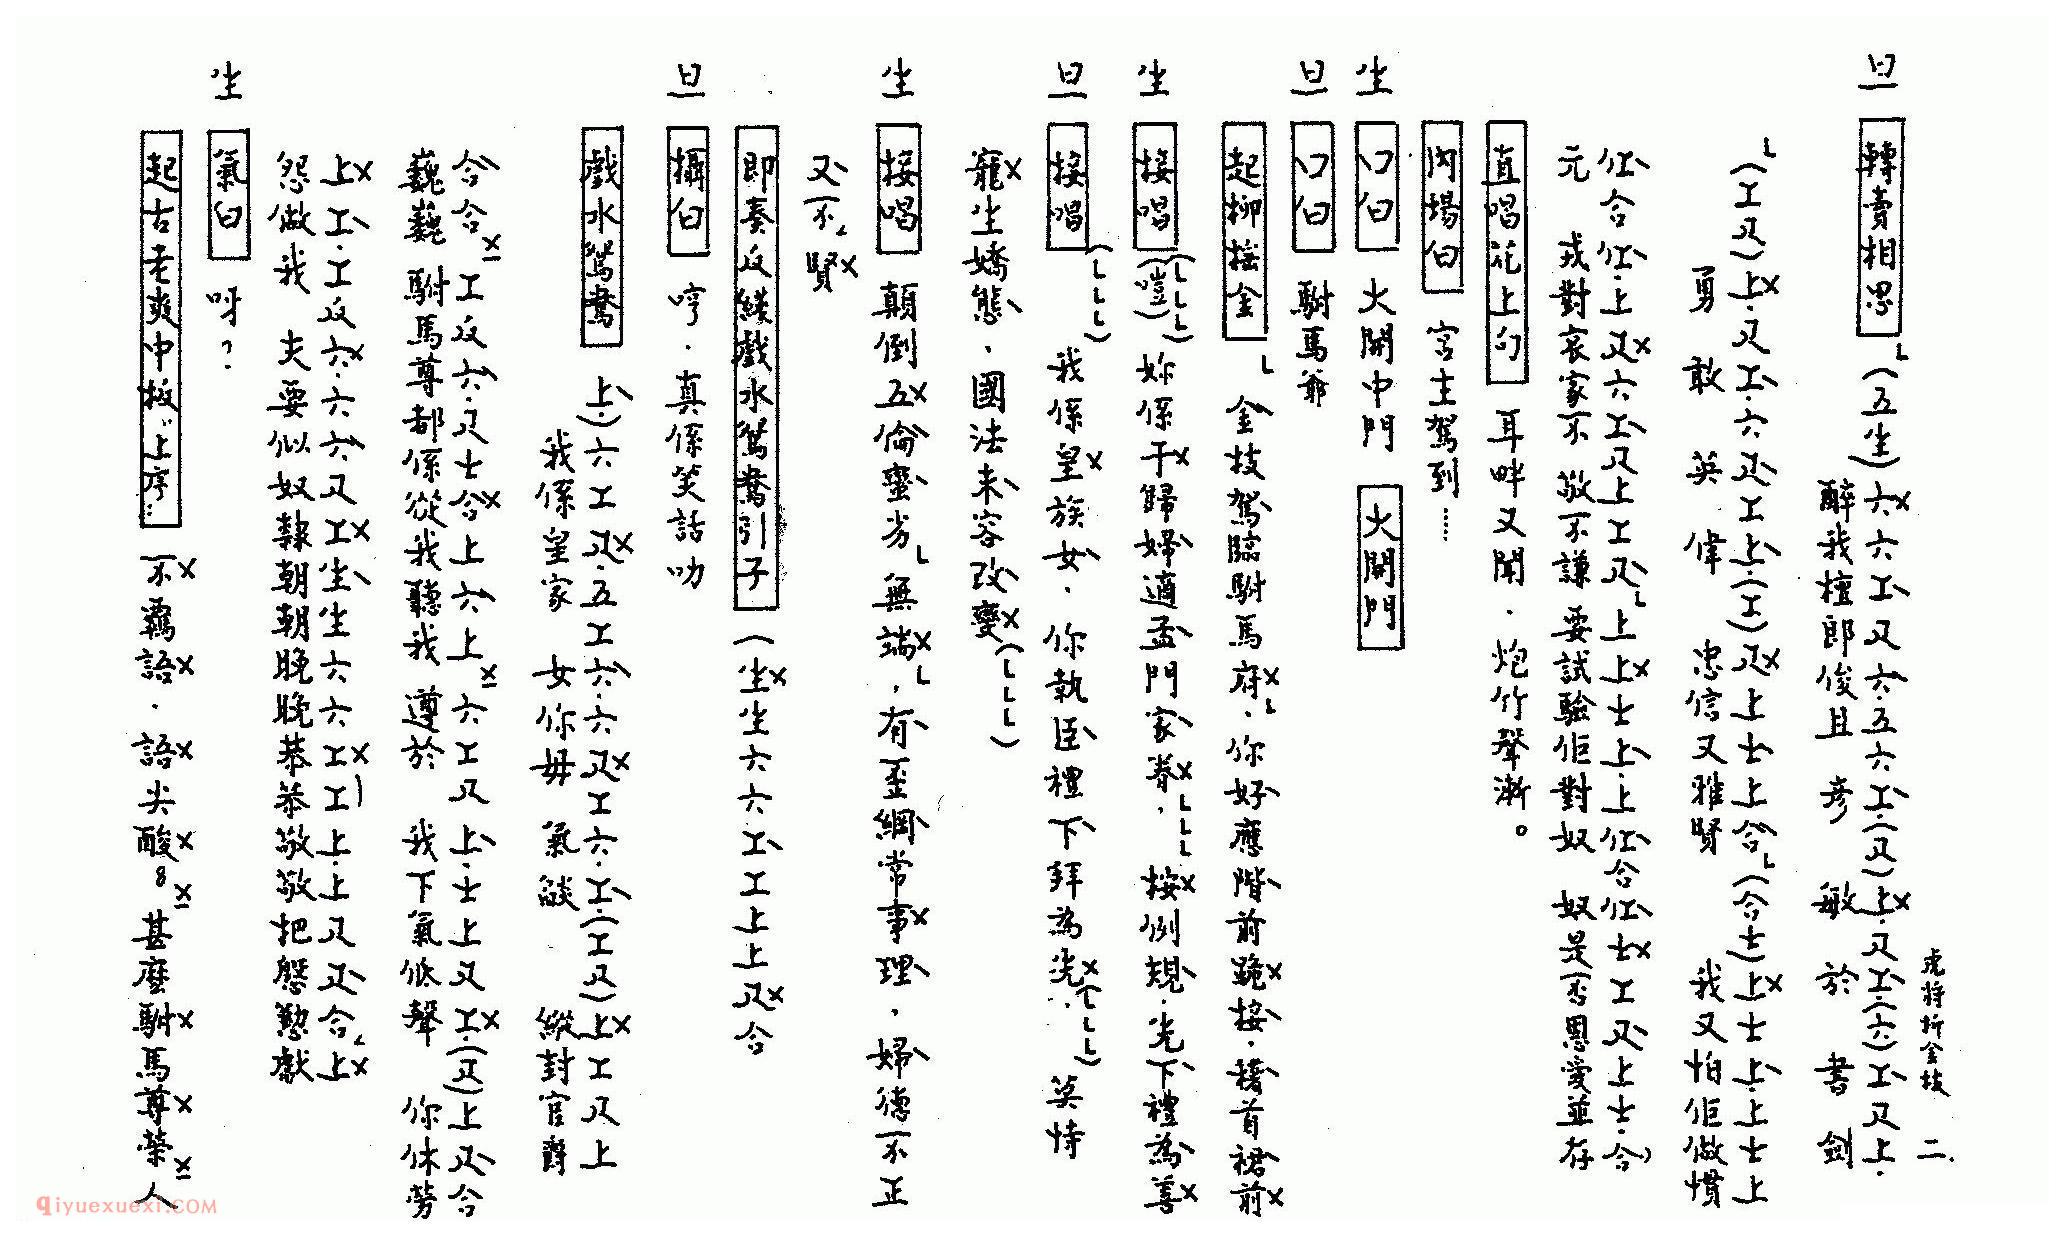 虎將折金枝 二.
旦 轉賣相思 (五生)六六工尺六.五六工.(尺)上.尺工.(六)工尺上.
醉我檀郎俊且彦敏於書劍
(工尺)上.尺工.六尺工上.(工)尺上士上合(合士)上士上.上士上
勇敢英偉 忠信又雅賢 我又怕佢做慣
仜合仜.上尺六工尺上工尺上上士上.上仜合仜士工尺上士.合)
元戎對哀家不敬不謙要試驗佢對奴 奴是否恩愛並存
直唱花上句 耳畔又聞.炮竹聲漸。
內場白 宮主駕到……
生 口白 大開中門 大開門
旦 口白 駙馬爺
起柳搖金 金枝駕臨駙馬府.你好應階前跪接.稽首裙前
生 接唱 (嗱)妳係干歸婦適孟門家眷.按例規.先下禮為善
旦 接唱 我係皇族女.你執臣禮下拜為先.莫恃
寵生嬌態.國法未容改變
生 接唱 顛倒五倫蠻劣無端,有歪綱常事理,婦德不正
又不賢
即奏反綫戲水鴛鴦引子 (生生六六工工上上尺合
旦 攝白 哼.真係笑話叻
戲水鴛鴦 上.)六工尺.五工六.六尺工六.工.(工尺)上工尺上
我係皇家女你毋氣燄 縱封官爵
合合工反六.尺士合上六上六工尺上.士上尺工.(尺)上尺合
巍巍駙馬尊都係從我聽我遵於我下氣低聲 你休勞
上工.工反六.六六尺工生生六六工工上.上尺尺合上
怨做我夫要似奴隸朝朝晚晚恭恭敬敬把慇懃獻
生 氣白 呀?
起古老爽中板"上序… 不羈語.語尖酸8甚麼駙馬尊榮人
qiyuexuexi.COM